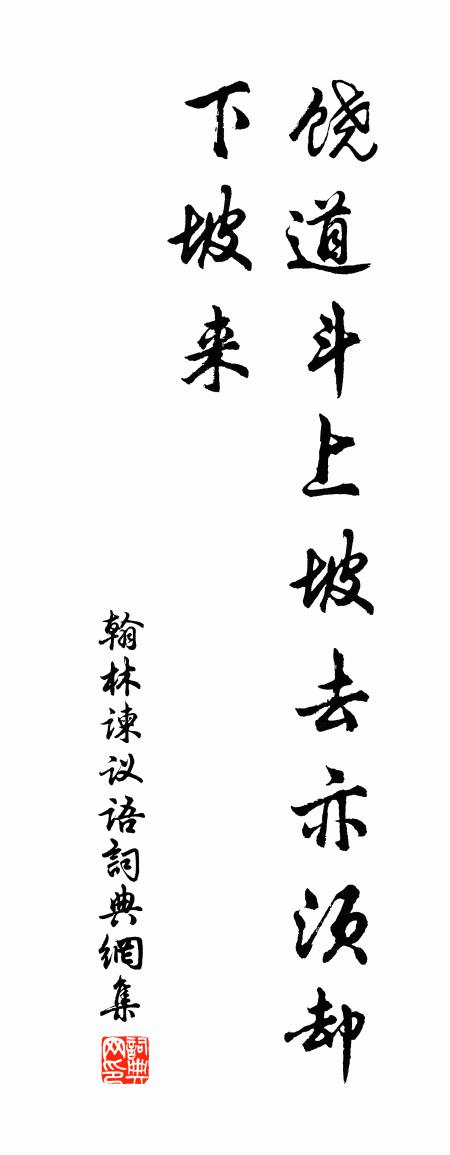 饶道斗上坡去亦须却
下坡来
翰林谏议语詞典網集
詞典网印